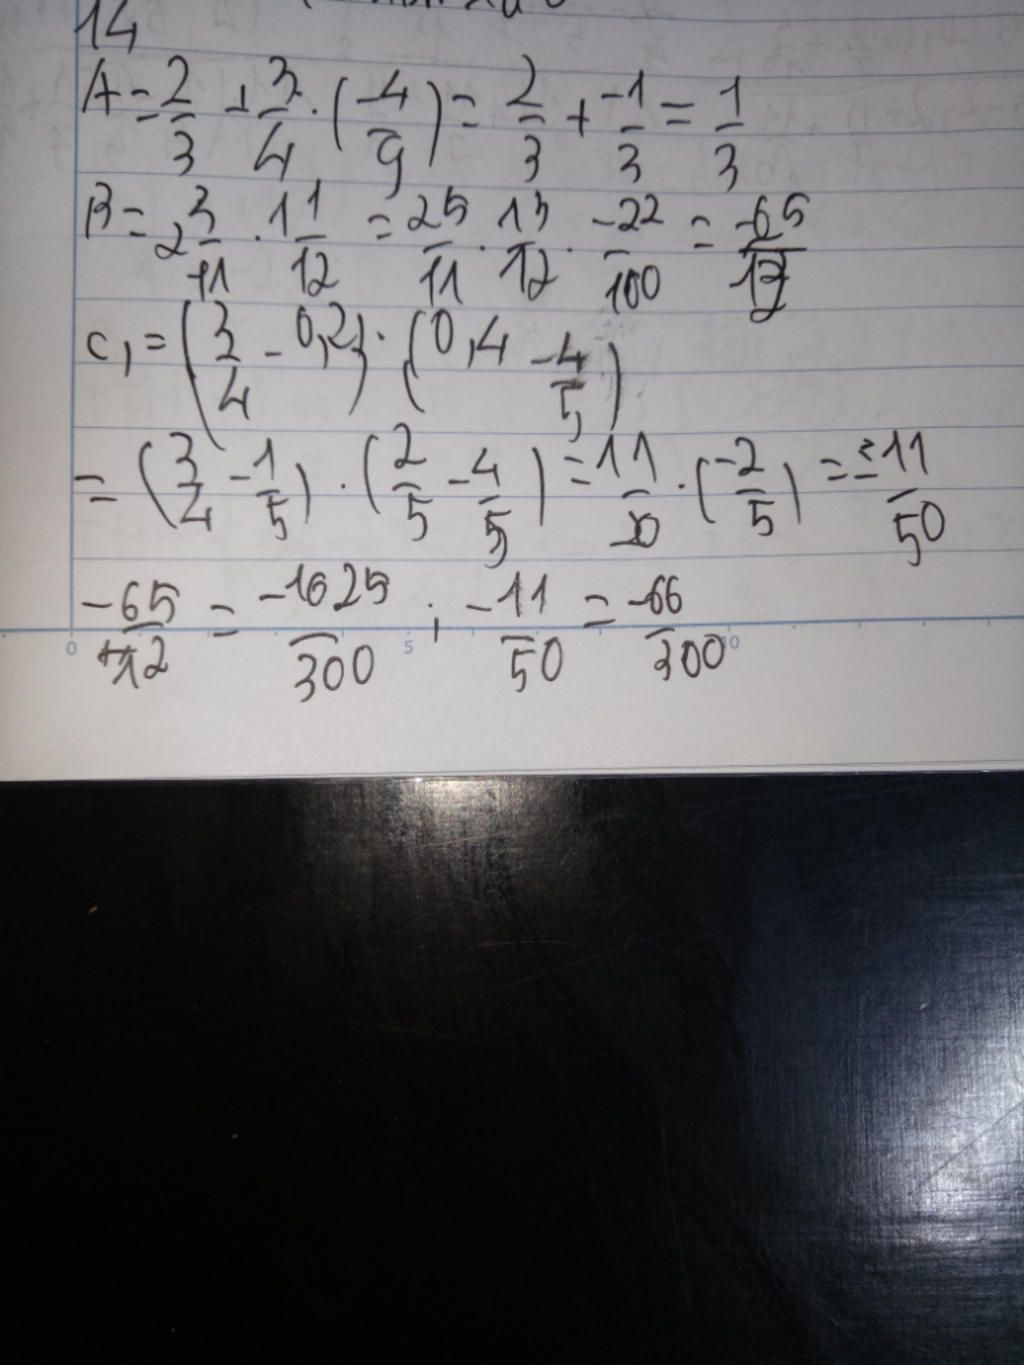 14
A = 2/3 + 3/4 · (-4/9) = 2/3 + -1/3 = 1/3
B = 2 3/11 · 1 1/12 = 25/11 · 13/12 · -22/100 = -65/12
C, = (3/4 - 0,2) · (0,4 - 4/5)
= (3/4 - 1/5) · (2/5 - 4/5) = 11/20 · (-2/5) = -11/50
-65/12 = -1625/300 ; -11/50 = -66/300
0 5 10